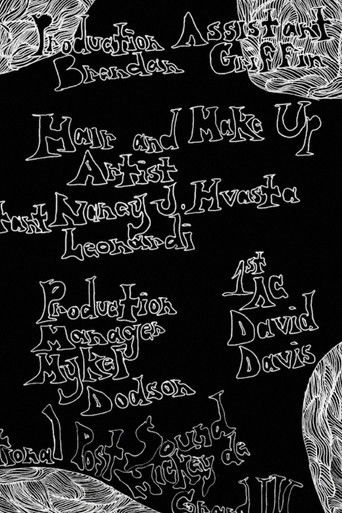 Production Assistant
Brendan Griffin
Hair and Make Up
Artist
tant Nancy J. Hvasta
Leonardi
Production
Manager
Mykel
Dodson
1st
AC
David
Davis
tional Post Sound
Mickey de
Grand IV